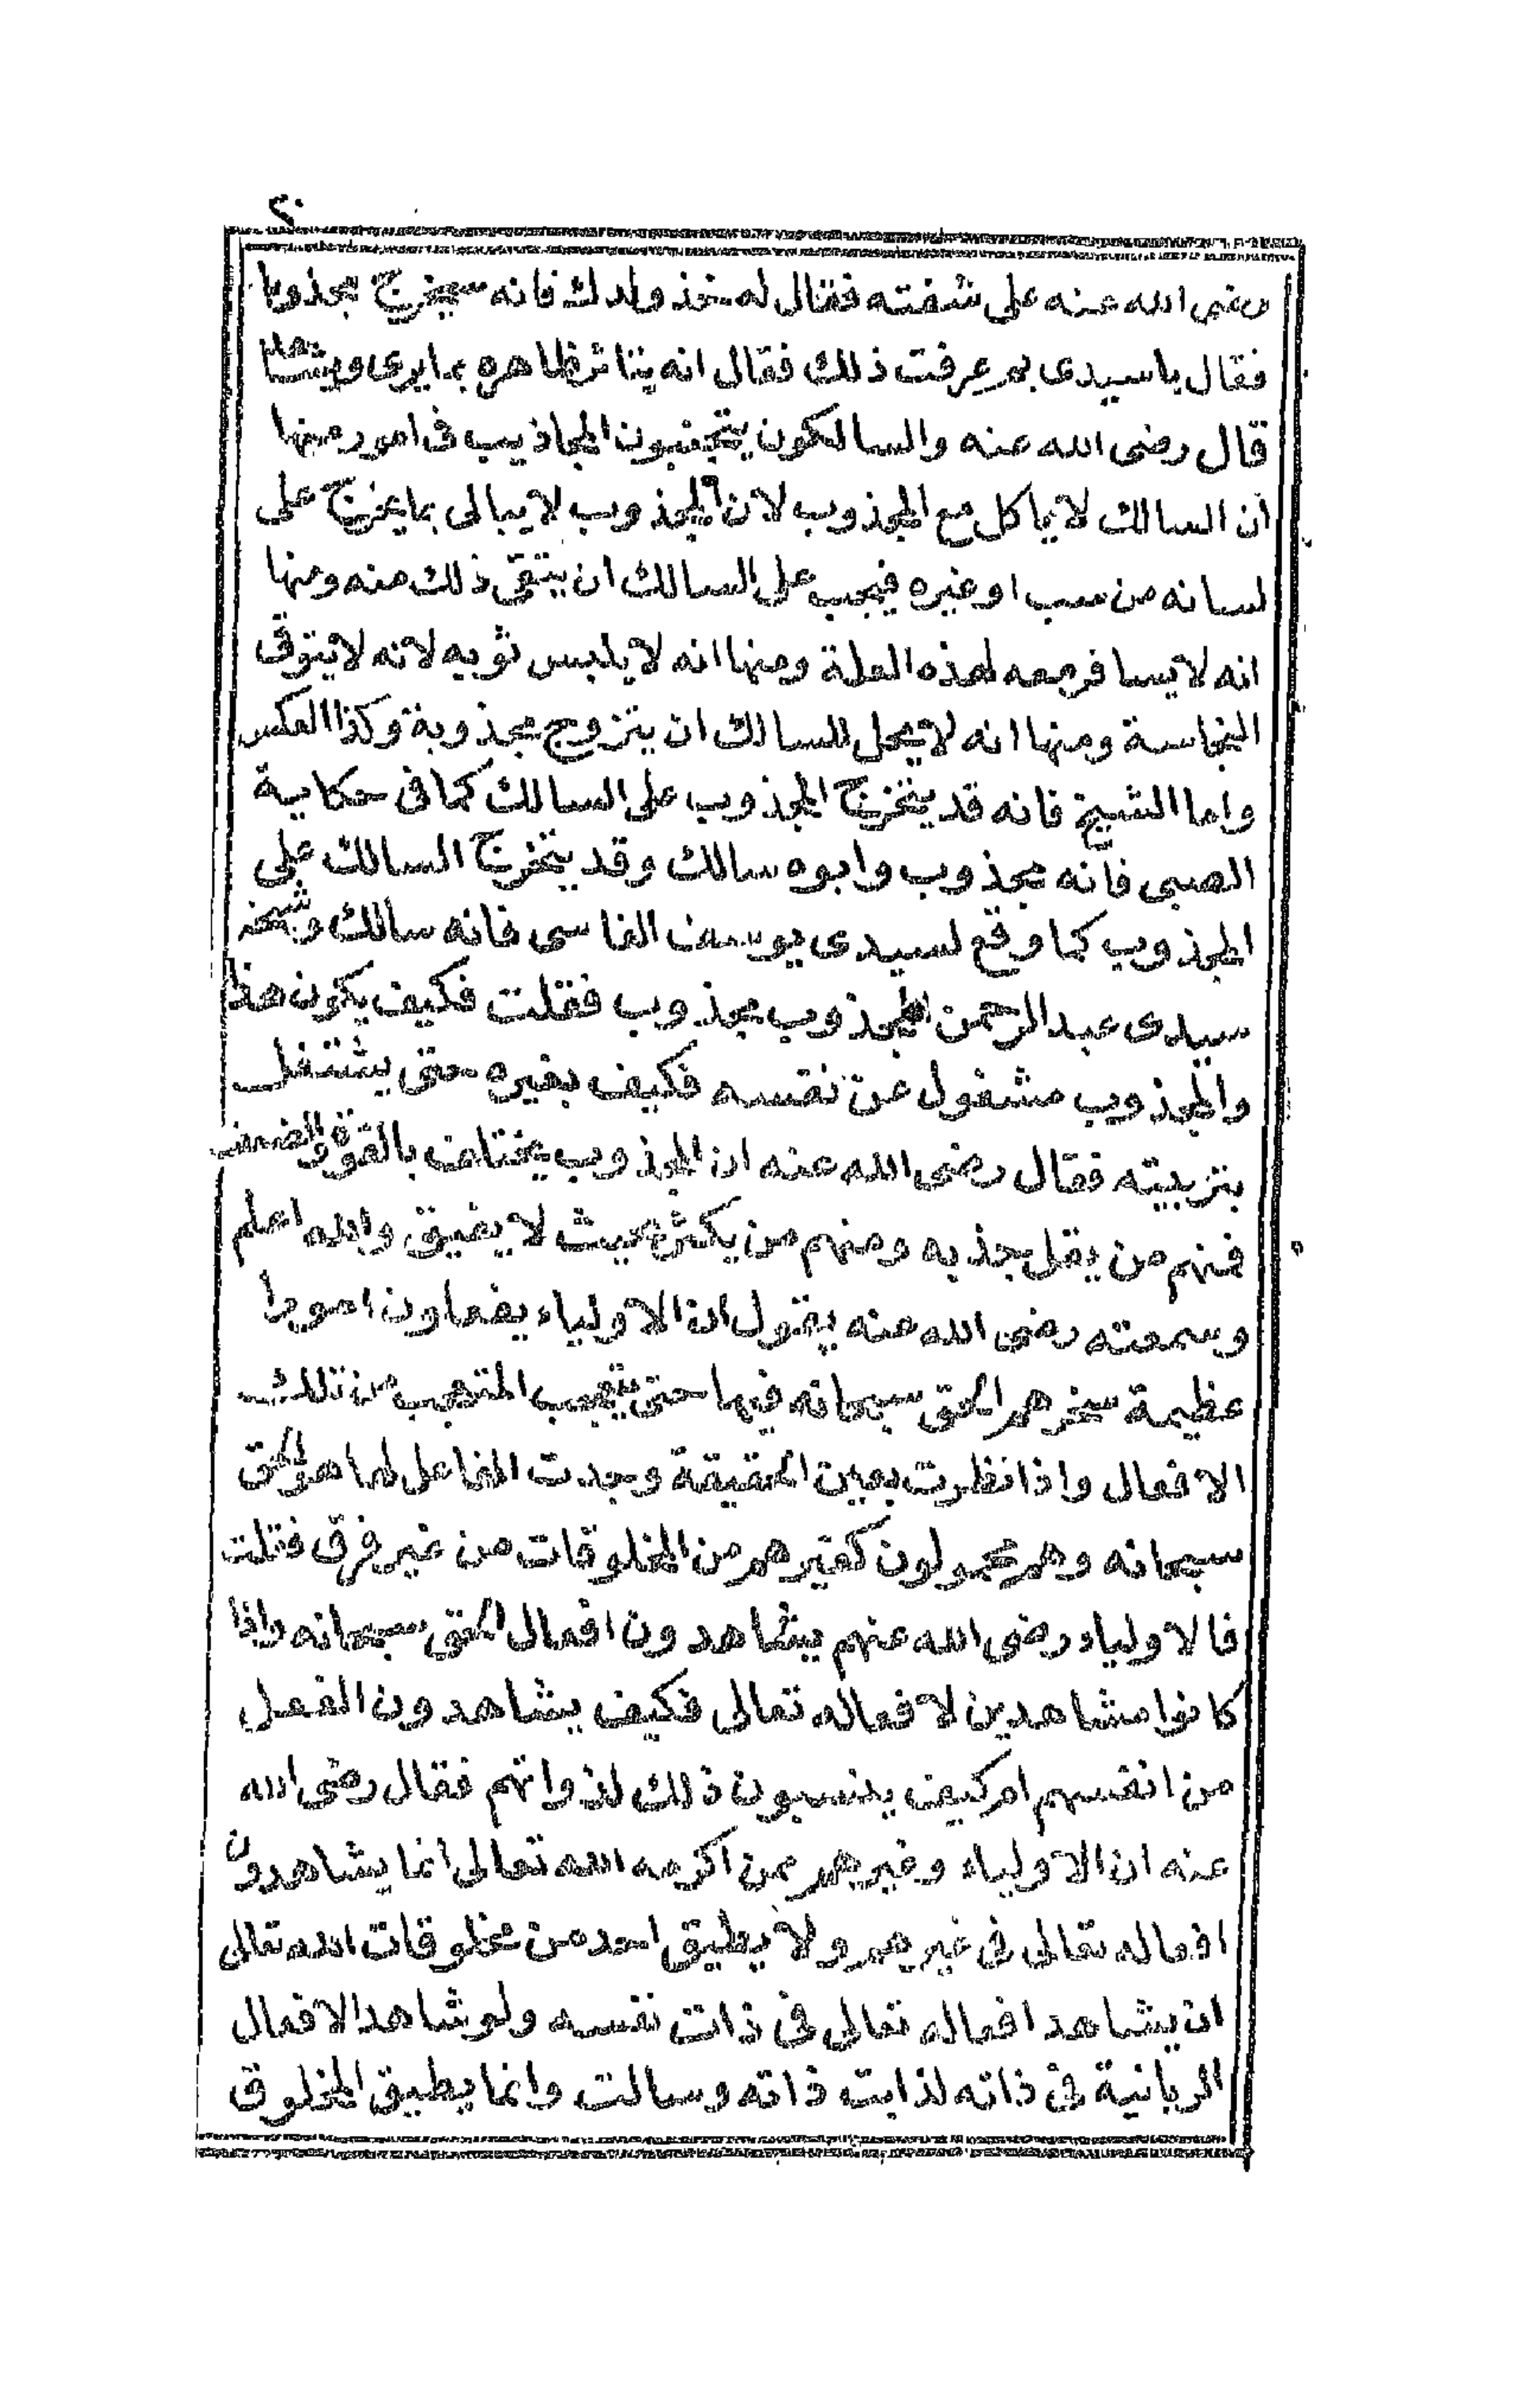 رضى الله عنه على شفته فقال له خذ ولدك فانه سيخرج مجذوبا
فقال يا سيدى بم عرفت ذلك فقال انه يتاثر ظاهره بما يرى ويشاهد
قال رضى الله عنه والسالكون يتجنبون المجاذيب فى امور منها
ان السالك لا ياكل مع المجذوب لان المجذوب لا يبالى بما يخرج على
لسانه من سب او غيره فيجب على السالك ان يتقى ذلك منه ومنها
انه لا يسافر معه لهذه العلة ومنها انه لا يلبس ثوبه لانه لا يتوقى
النجاسة ومنها انه لا يحل للسالك ان يتزوج مجذوبة وكذا العكس
واما الشيخ فانه قد يتخرج المجذوب على السالك كما فى حكاية
الصبى فانه مجذوب وابوه سالك وقد يتخرج السالك على
المجذوب كما وقع لسيدى يوسف الفاسى فانه سالك وشيخه
سيدى عبد الرحمن المجذوب مجذوب فقلت فكيف يكون هذا
والمجذوب مشغول عن نفسه فكيف بغيره حتى يشتغل
بتربيته فقال رضى الله عنه ان المجذوب يختلف بالقوة والضعف
فمنهم من يقل جذبه ومنهم من يكثر بحيث لا يفيق والله اعلم
وسمعته رضى الله عنه يقول ان الاولياء يفعلون امورا
عظيمة سخرهم الحق سبحانه فيها حتى يتعجب المتعجب من تلك
الافعال واذا نظرت بعين الحقيقة وجدت الفاعل لها هو الحق
سبحانه وهم محمولون كغيرهم من المخلوقات من غير فرق فقلت
فالاولياء رضى الله عنهم يشاهدون افعال الحق سبحانه واذا
كانوا مشاهدين لافعاله تعالى فكيف يشاهدون الفعل
من انفسهم ام كيف ينسبون ذلك لذواتهم فقال رضى الله
عنه ان الاولياء وغيرهم ممن اكرمه الله تعالى انما يشاهدون
افعاله تعالى فى غيرهم ولا يطيق احد من مخلوقات الله تعالى
ان يشاهد افعاله تعالى فى ذات نفسه ولو شاهد الافعال
الربانية فى ذاته لذابت ذاته وسالت وانما يطيق المخلوق